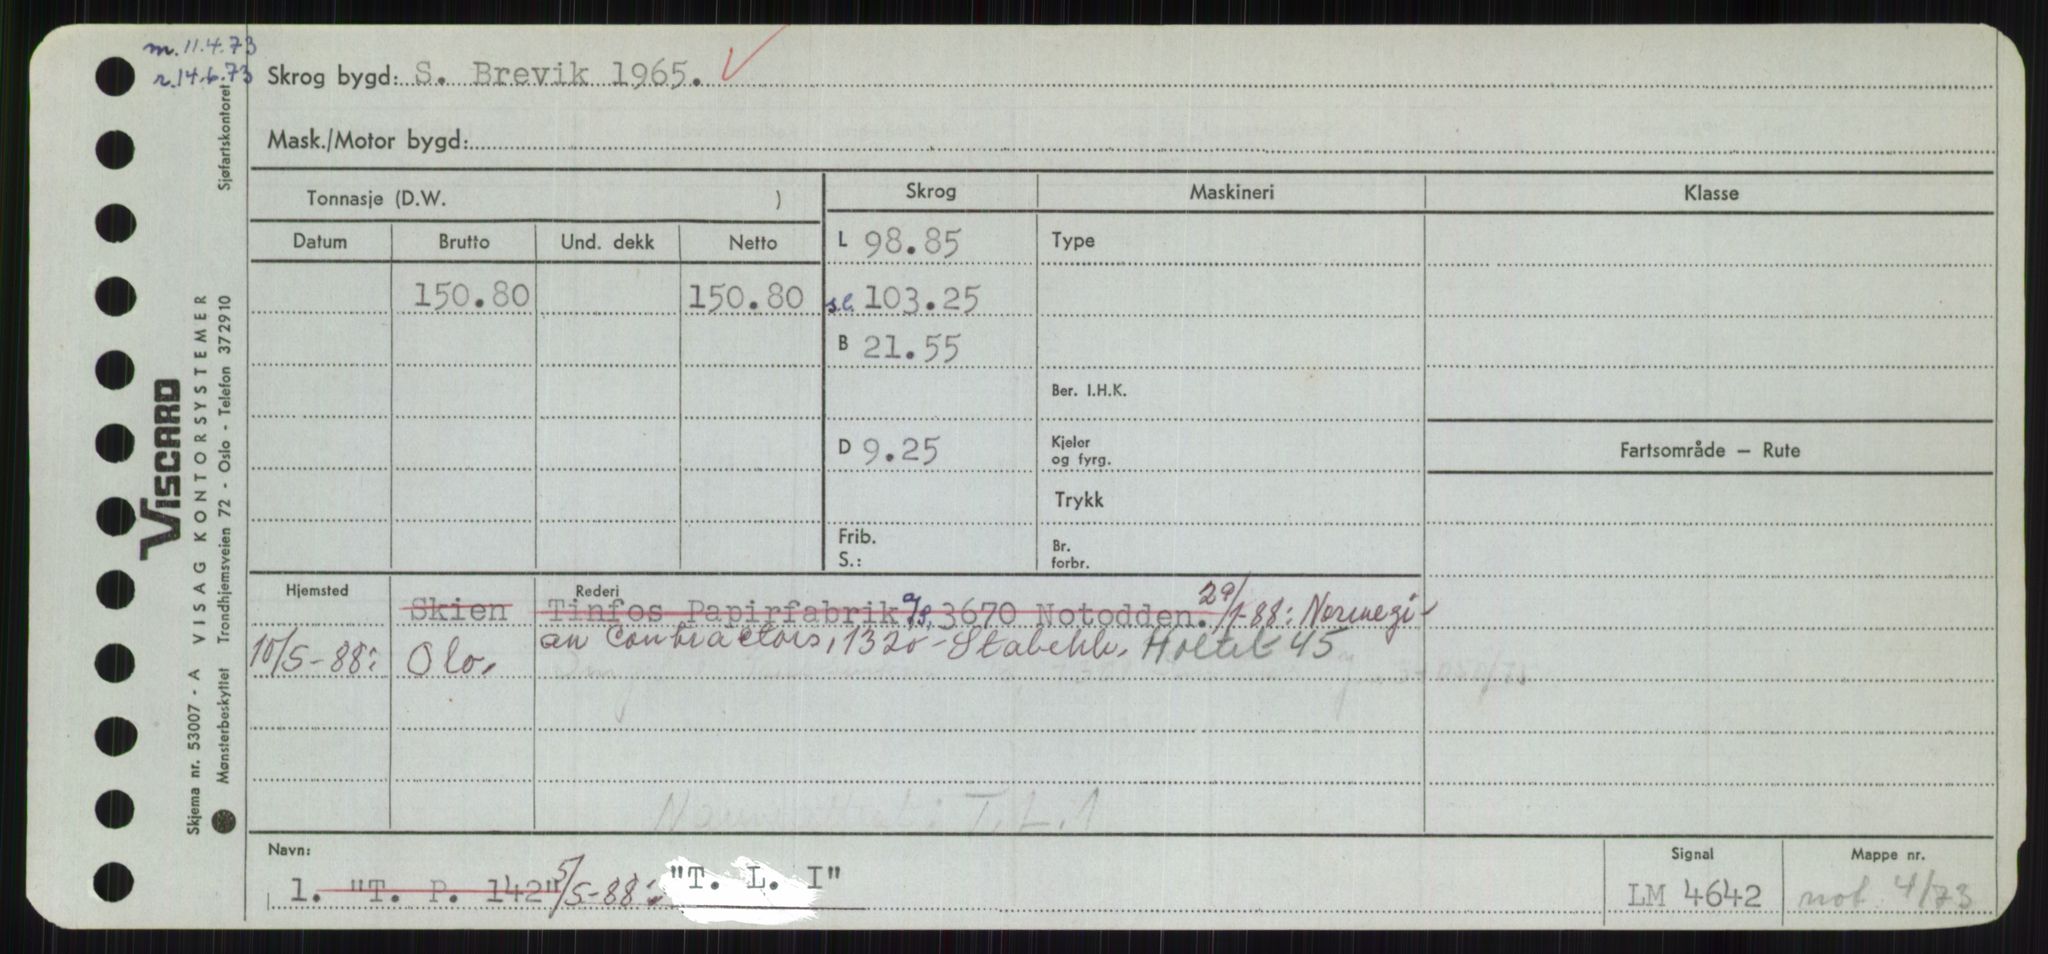 m. 11.4.73
r. 14.6.73
Skrog bygd: S. Brevik 1965.
Mask./Motor bygd:
Tonnasje (D.W. )
Skrog
Maskineri
Klasse
Datum
Brutto
Und. dekk
Netto
L 98.85
Type
150.80
150.80
s.l. 103.25
B 21.55
Ber. I.H.K.
D 9.25
Kjeler
og fyrg.
Fartsområde — Rute
Trykk
Frib.
S.:
Br.
forbr.
Hjemsted
Rederi
Skien
Tinfos Papirfabrik A/S, 3670 Notodden. 29/1-88: Norwegi-
10/5-88: Olo.
an Contractors, 1320-Stabekk. Holtet 45
T. L. 1
Navn:
1. "T. P. 142" 5/5-88: "T. L. I"
Signal
LM 4642
Mappe nr.
not. 4/73
VISCARD
Skjema nr. 53007 - A VISAG KONTORSYSTEMER
Mønsterbeskyttet Trondhjemsveien 72 - Oslo - Telefon 372910
Sjøfartskontoret